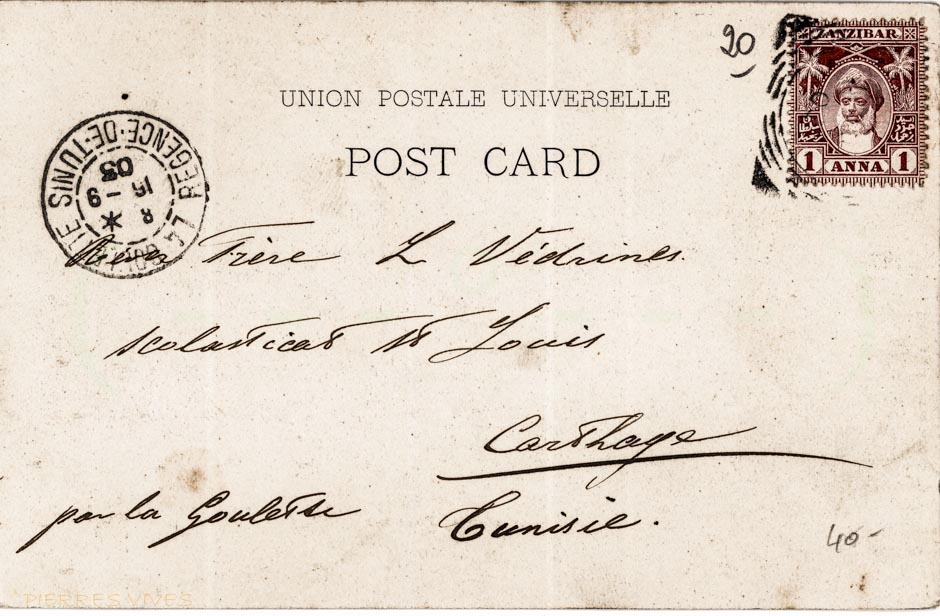 20
ZANZIBAR
1 ANNA 1
UNION POSTALE UNIVERSELLE
POST CARD
REGENCE-DE-TUNIS
LA GOULETTE
8
15 - 9
03
Frère L Védrines
scolasticat St Louis
Carthage
par la Goulette
Tunisie.
40-
PIERRES VIVES